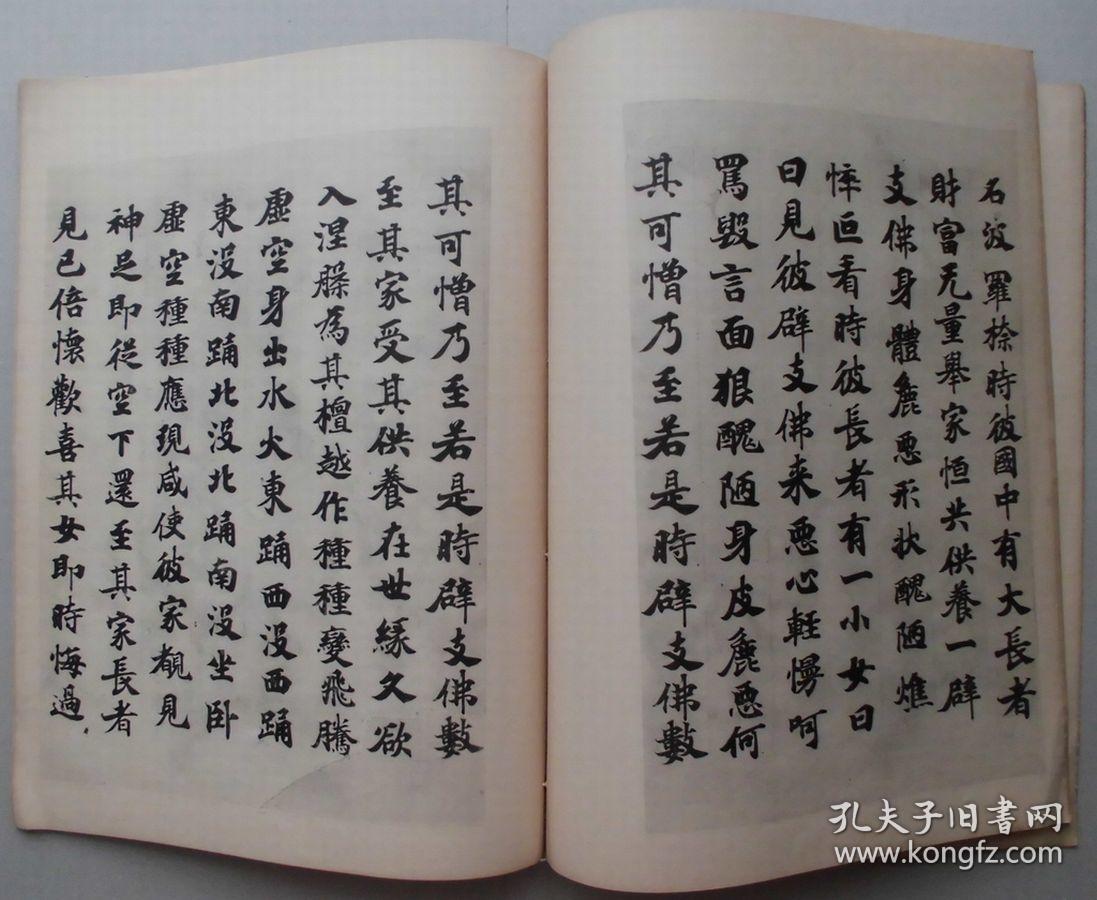 名波羅㮈時彼國中有大長者
財富无量舉家恒共供養一辟
支佛身體麁惡形狀醜陋燋
悴叵看時彼長者有一小女日
日見彼辟支佛来惡心輕慢呵
罵毀言面狠醜陋身皮麁惡何
其可憎乃至若是時辟支佛數
其可憎乃至若是時辟支佛數
至其家受其供養在世緣久欲
入涅槃為其檀越作種種變飛騰
虛空身出水火東踊西没西踊
東没南踊北没北踊南没坐卧
虛空種種應現咸使彼家覩見
神足即從空下還至其家長者
見已倍懷歡喜其女即時悔過
孔夫子旧书网
www.kongfz.com